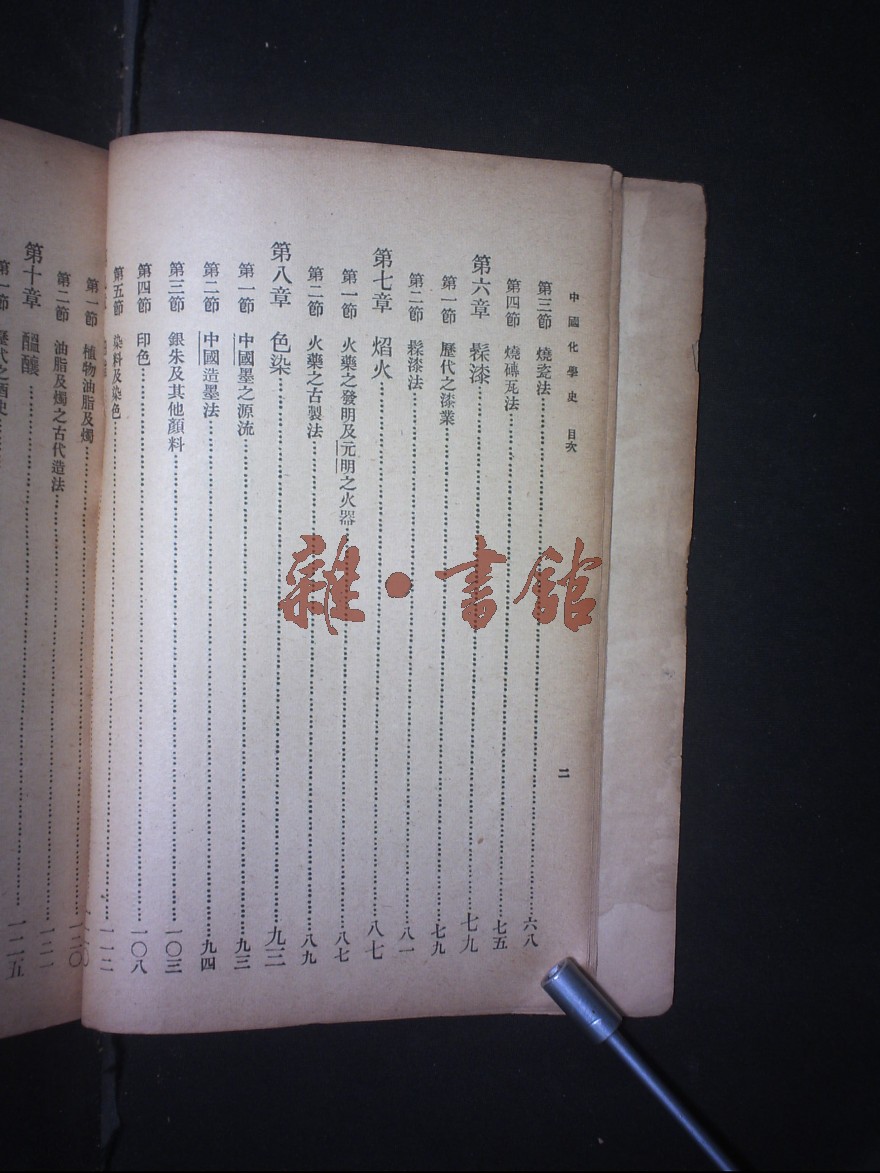 中國化學史 目次 二
第三節 燒瓷法 六八
第四節 燒磚瓦法 七五
第六章 髹漆 七九
第一節 歷代之漆業 七九
第二節 髹漆法 八一
第七章 焰火 八七
第一節 火藥之發明及元明之火器 八七
第二節 火藥之古製法 八九
第八章 色染 九三
第一節 中國墨之源流 九三
第二節 中國造墨法 九四
第三節 銀朱及其他顏料 一〇三
第四節 印色 一〇八
第五節 染料及染色 一一二
第一節 植物油脂及燭 一二〇
第二節 油脂及燭之古代造法 一二一
第十章 醞釀
第一節 歷代之酒史 一二五
雜·書館